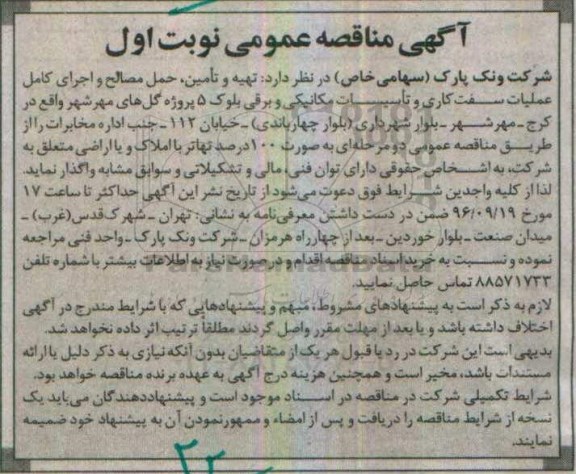 آگهی مناقصه عمومی نوبت اول
شرکت ونک پارک (سهامی خاص) در نظر دارد: تهیه و تأمین، حمل مصالح و اجرای کامل
عملیات سفت کاری و تأسیسات مکانیکی و برقی بلوک ۵ پروژه گل‌های مهرشهر واقع در
کرج ـ مهرشهر ـ بلوار شهرداری (بلوار چهارباندی) ـ خیابان ۱۱۲ ـ جنب اداره مخابرات را از
طریق مناقصه عمومی دو مرحله‌ای به صورت ۱۰۰ درصد تهاتر با املاک و یا اراضی متعلق به
شرکت، به اشخاص حقوقی دارای توان فنی، مالی و تشکیلاتی و سوابق مشابه واگذار نماید.
لذا از کلیه واجدین شرایط فوق دعوت می‌شود از تاریخ نشر این آگهی حداکثر تا ساعت ۱۷
مورخ ۹۶/۰۹/۱۹ ضمن در دست داشتن معرفی‌نامه به نشانی: تهران ـ شهرک قدس (غرب) ـ
میدان صنعت ـ بلوار خوردین ـ بعد از چهارراه هرمزان ـ شرکت ونک پارک ـ واحد فنی مراجعه
نموده و نسبت به خرید اسناد مناقصه اقدام و در صورت نیاز به اطلاعات بیشتر با شماره تلفن
۸۸۵۷۱۷۳۳ تماس حاصل نمایید.
لازم به ذکر است به پیشنهادهای مشروط، مبهم و پیشنهادهایی که با شرایط مندرج در آگهی
اختلاف داشته باشد و یا بعد از مهلت مقرر واصل گردند مطلقاً ترتیب اثر داده نخواهد شد.
بدیهی است این شرکت در رد یا قبول هر یک از متقاضیان بدون آنکه نیازی به ذکر دلیل یا ارائه
مستندات باشد، مخیر است و همچنین هزینه درج آگهی به عهده برنده مناقصه خواهد بود.
شرایط تکمیلی شرکت در مناقصه در اسناد موجود است و پیشنهاددهندگان می‌باید یک
نسخه از شرایط مناقصه را دریافت و پس از امضاء و ممهور نمودن آن به پیشنهاد خود ضمیمه
نمایند.